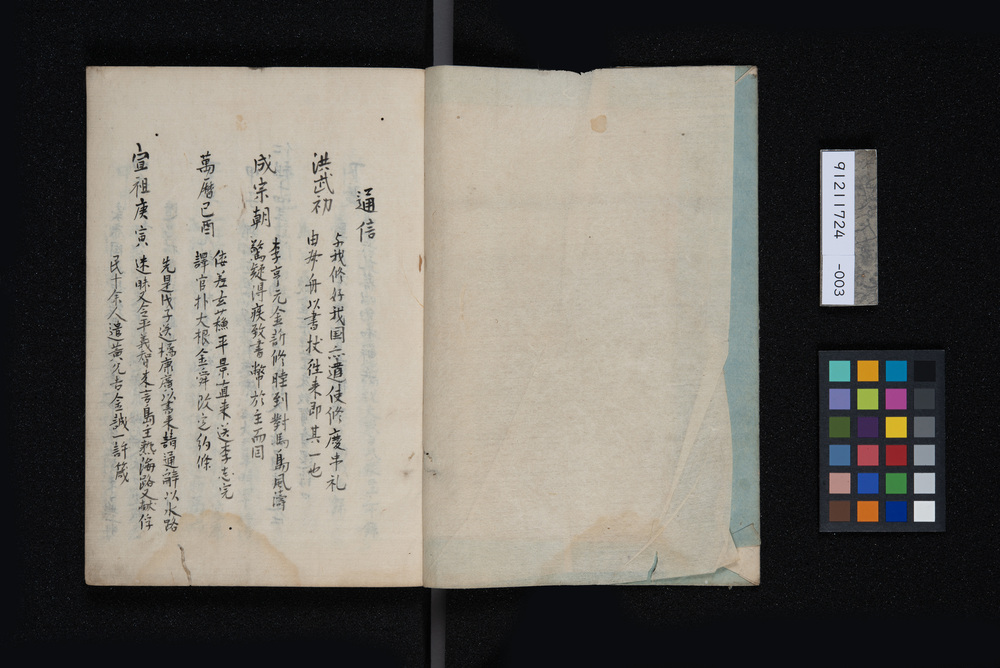 通信
洪武初
与我修好我国亦遣使修慶弔礼
由教舟以書状往来即其一也
成宗朝
李亨元金訢修睦到對馬島風濤
驚疑得疾致書幣於主而囬
萬暦己酉
倭差玄蘓平景直来送李志完
譯官朴大根金舜改定約條
宣祖庚寅
先是戊子送橘康廣以書来請通解以水路
迷昧又令平義智来言島主熟海路又献俘
民十余人遣黄允吉金誠一許筬
91211724 -003